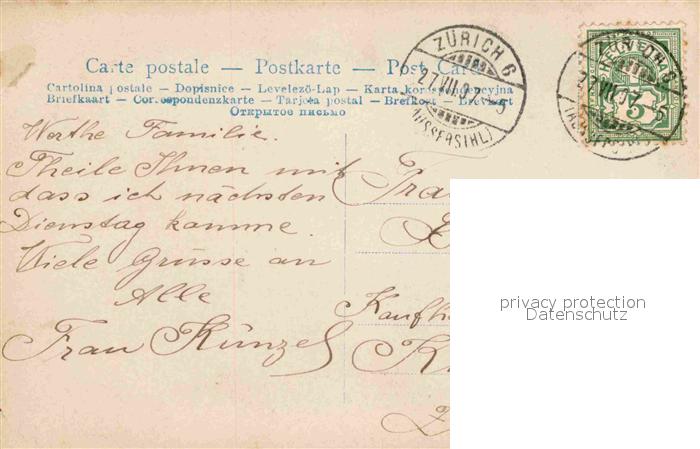 Carte postale — Postkarte — Post Card
Cartolina postale — Dopisnice — Levelező-Lap — Karta korespondencyjna
Briefkaart — Correspondenzkarte — Tarjeta postal — Brefkort — Brevkort
Открытое письмо
ZÜRICH 6
27.VII.07
(AUSSERSIHL)
HELVETIA
5
Werthe Familie.
Theile Ihnen mit
dass ich nächsten
Dienstag komme.
Viele Grüsse an
Alle
Frau Künzel
Fra
Kaufh
K
privacy protection
Datenschutz